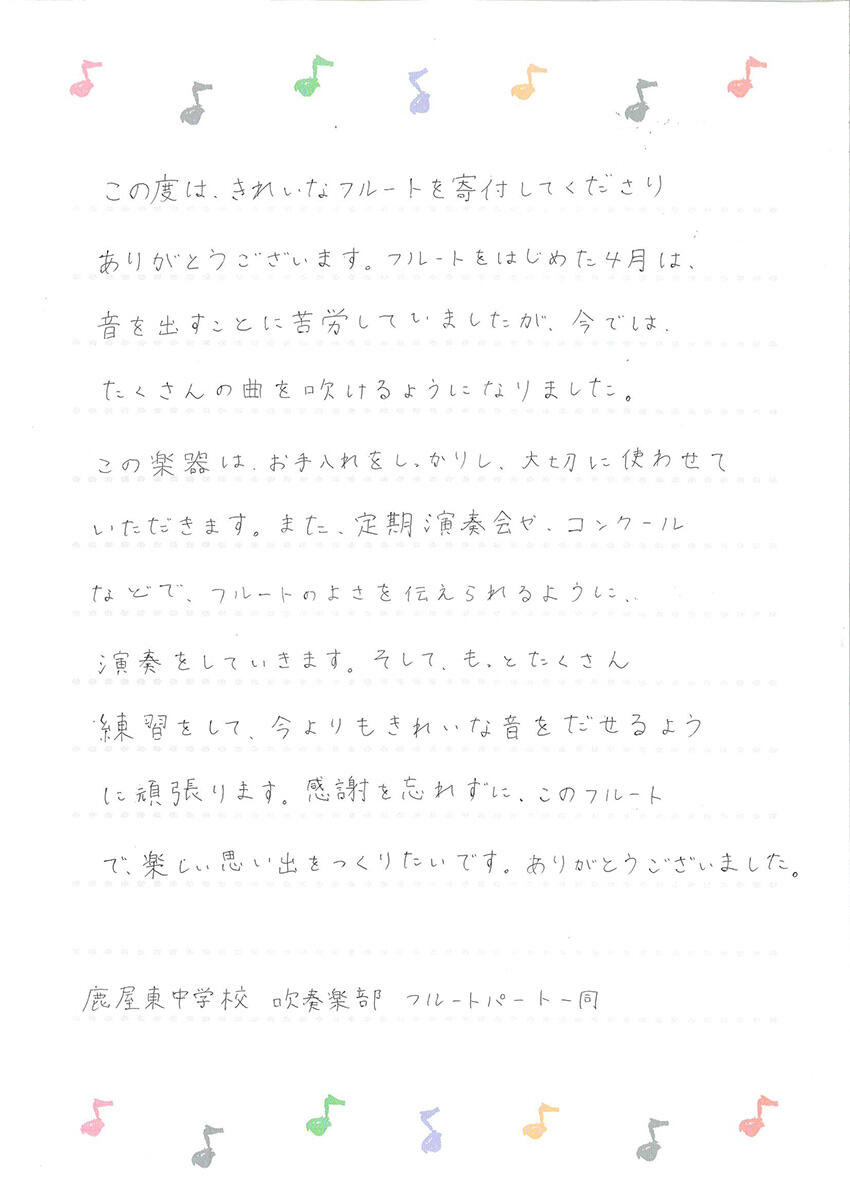 この度は、きれいなフルートを寄付してくださり
ありがとうございます。フルートをはじめた4月は、
音を出すことに苦労していましたが、今では、
たくさんの曲を吹けるようになりました。
この楽器は、お手入れをしっかりし、大切に使わせて
いただきます。また、定期演奏会や、コンクール
などで、フルートのよさを伝えられるように、
演奏をしていきます。そして、もっとたくさん
練習をして、今よりもきれいな音をだせるよう
に頑張ります。感謝を忘れずに、このフルート
で、楽しい思い出をつくりたいです。ありがとうございました。
鹿屋東中学校 吹奏楽部 フルートパート一同